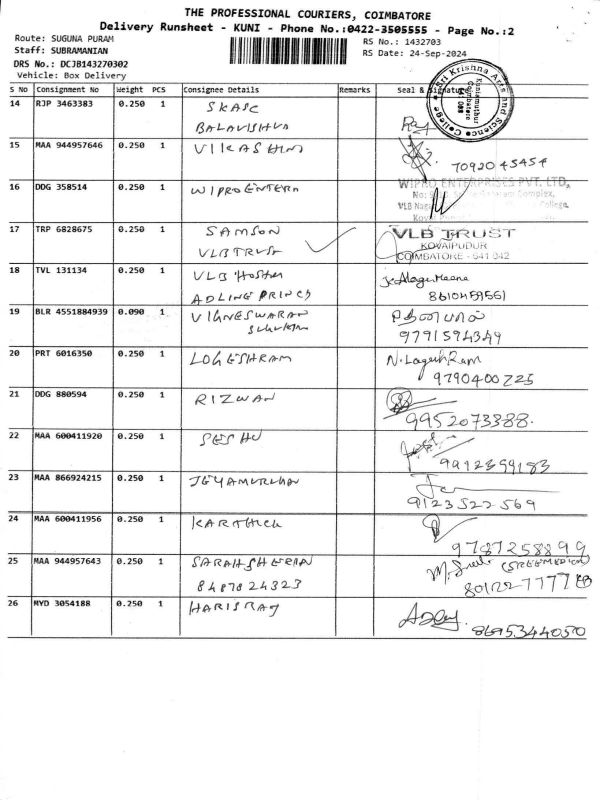 THE PROFESSIONAL COURIERS, COIMBATORE
Delivery Runsheet - KUNI - Phone No.:0422-3505555 - Page No.:2
Route: SUGUNA PURAM
RS No.: 1432703
Staff: SUBRAMANIAN
RS Date: 24-Sep-2024
DRS No.: DCJB143270302
Vehicle: Box Delivery
S No Consignment No Weight PCS Consignee Details Remarks Seal & Signature
Sri Krishna Arts and Science College
Kuniamuthur
Coimbatore
14 RJP 3463383 0.250 1 SKASC
BALAVISHVA
15 MAA 944957646 0.250 1 VIKASHINI
7092045454
16 DDG 358514 0.250 1 WIPROENTERN
WIPRO ENTERPRISES PVT. LTD.,
17 TRP 6828675 0.250 1 SAMSON
VLBTRUST
VLB TRUST
KOVAIPUDUR
COIMBATORE - 641 042
18 TVL 131134 0.250 1 VLB Hostel
ADLINE PRINCY
8610459561
19 BLR 4551884939 0.090 1 VIGNESWARAN
9791594349
20 PRT 6016350 0.250 1 LOGESHRAM
N. LogeshRam
9790400725
21 DDG 880594 0.250 1 RIZWAN
9952073388.
22 MAA 600411920 0.250 1 SESHU
23 MAA 866924215 0.250 1 JEYAMURUGAN
9123522569
24 MAA 600411956 0.250 1 KARTHICK
9787258899
25 MAA 944957643 0.250 1 SARAHSHERIN
8487824323
26 MYD 3054188 0.250 1 HARISRAJ
8695344050